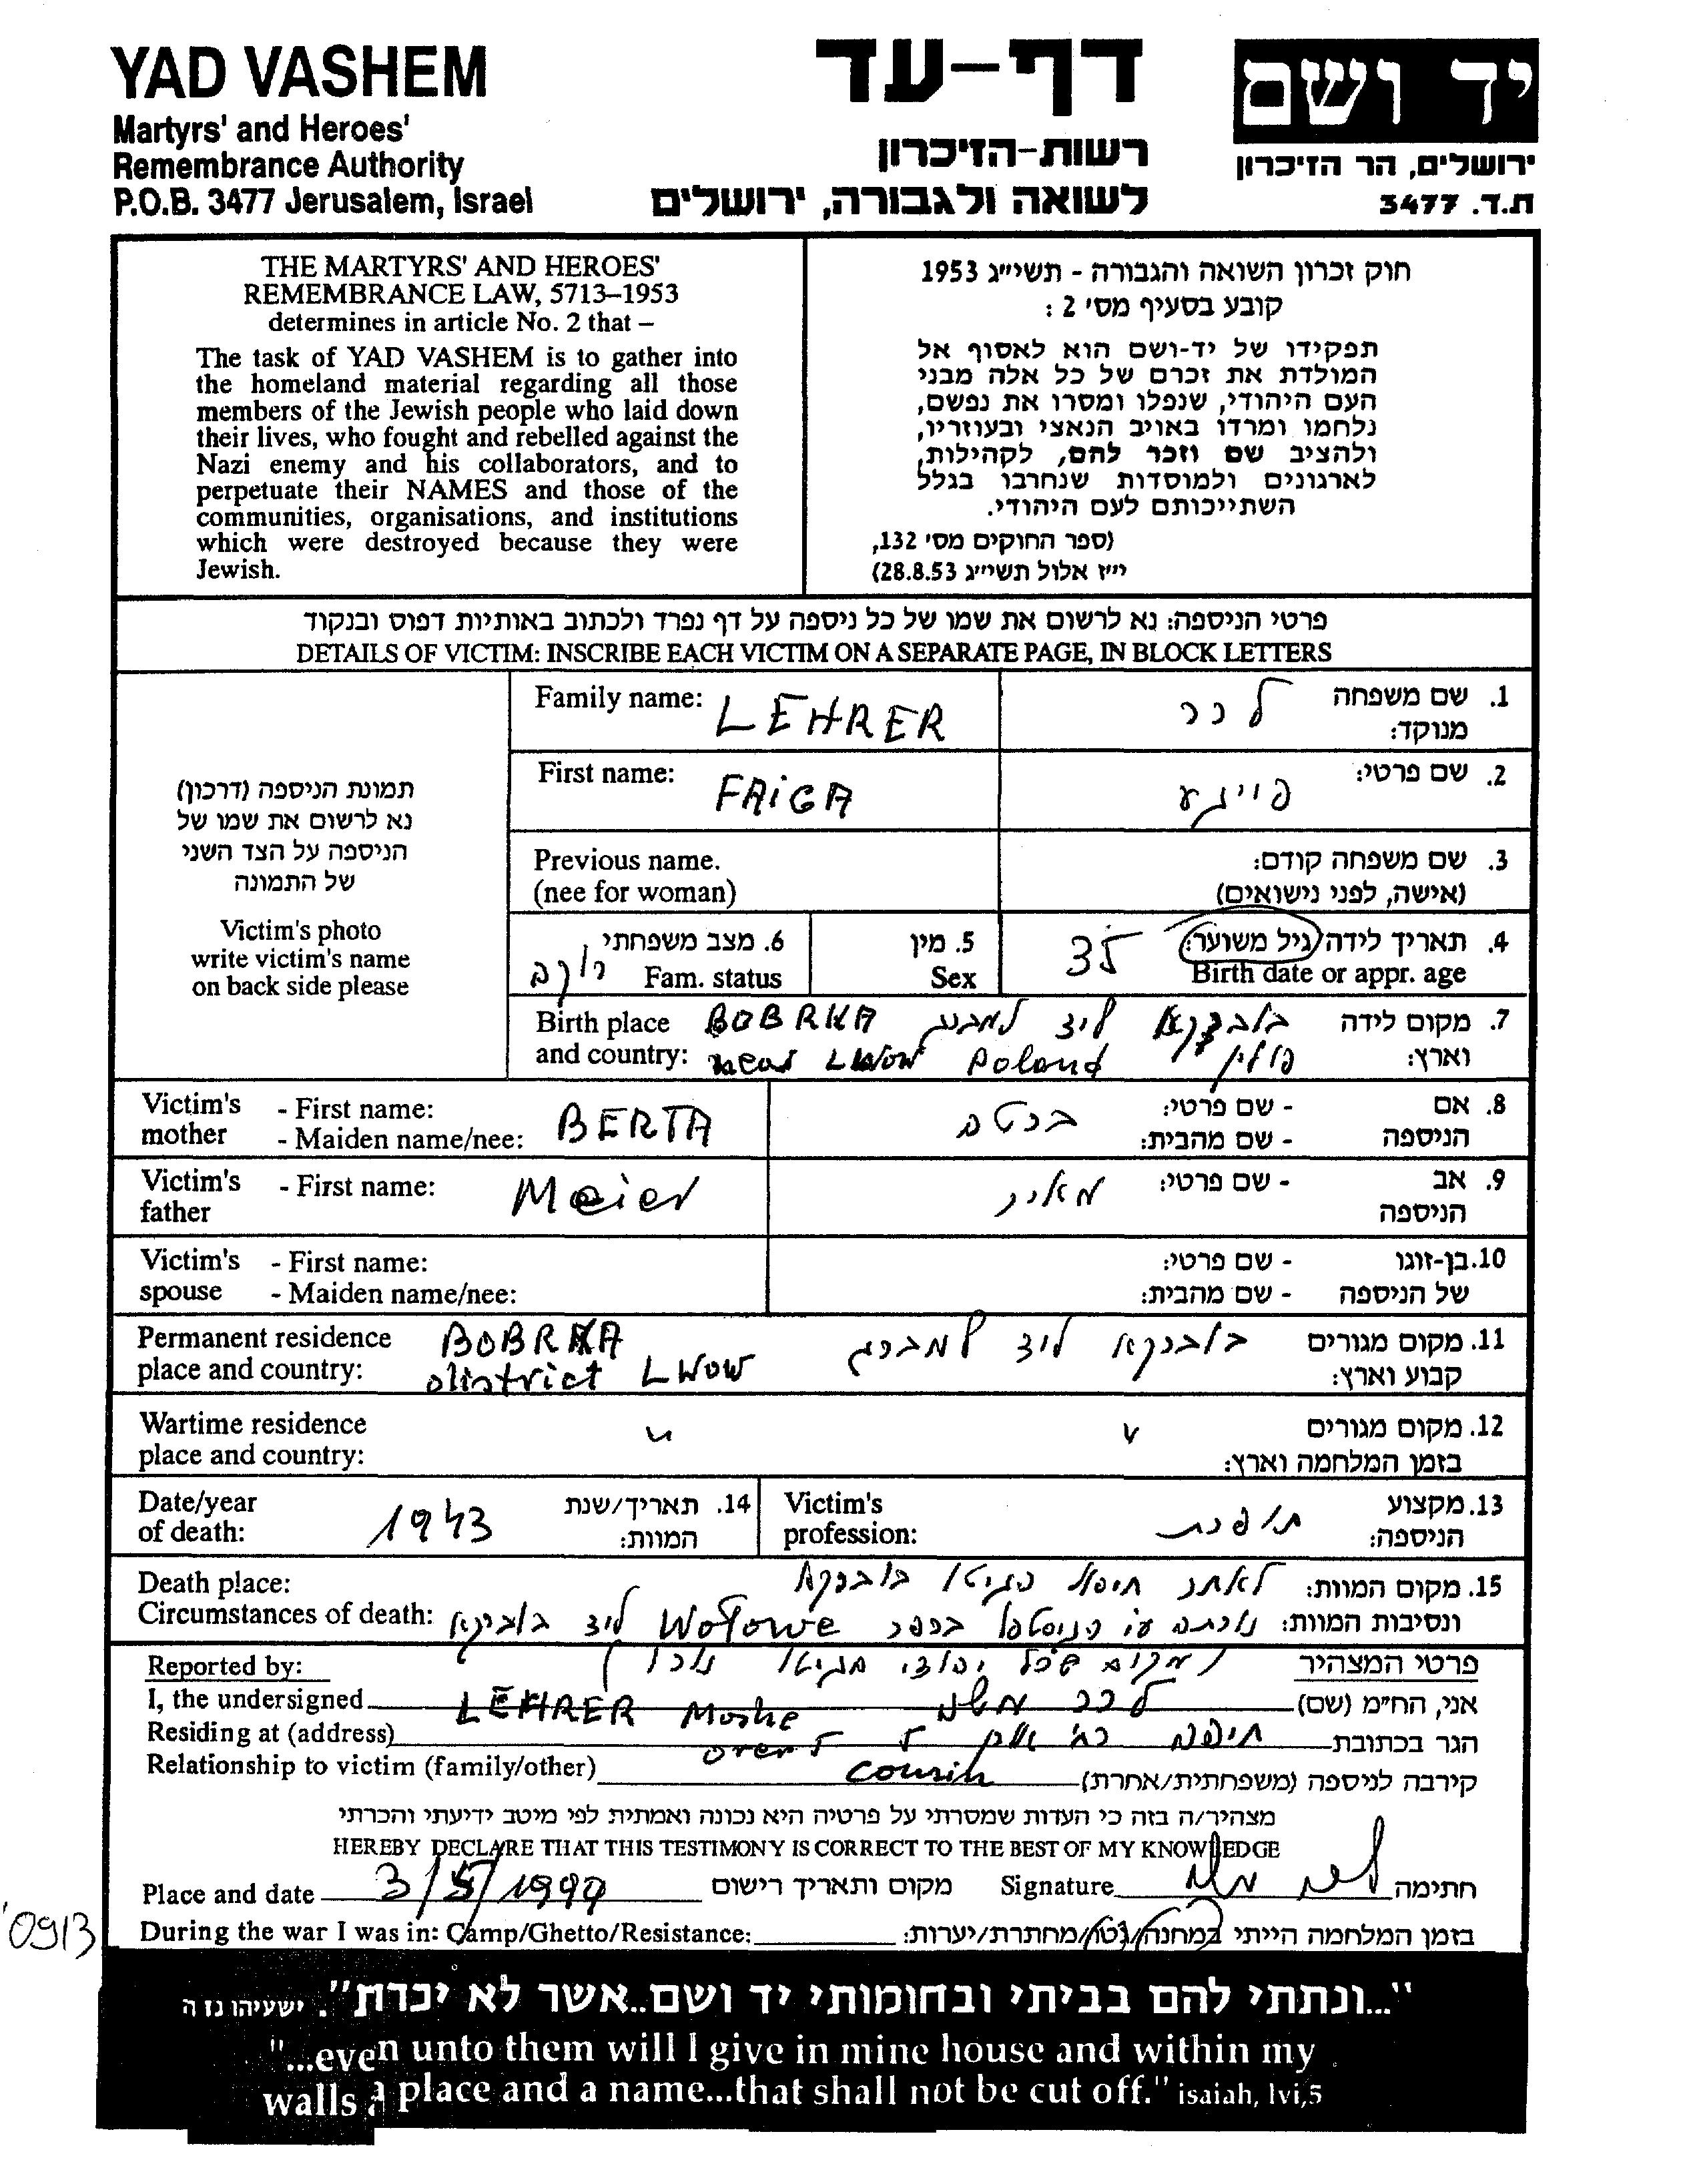 YAD VASHEM
Martyrs' and Heroes'
Remembrance Authority
P.O.B. 3477 Jerusalem, Israel
דף-עד
רשות-הזיכרון
לשואה ולגבורה, ירושלים
יד ושם
ירושלים, הר הזיכרון
ת.ד. 3477
THE MARTYRS' AND HEROES'
REMEMBRANCE LAW, 5713–1953
determines in article No. 2 that –
The task of YAD VASHEM is to gather into
the homeland material regarding all those
members of the Jewish people who laid down
their lives, who fought and rebelled against the
Nazi enemy and his collaborators, and to
perpetuate their NAMES and those of the
communities, organisations, and institutions
which were destroyed because they were
Jewish.
חוק זכרון השואה והגבורה - תשי״ג 1953
קובע בסעיף מס׳ 2 :
תפקידו של יד-ושם הוא לאסוף אל
המולדת את זכרם של כל אלה מבני
העם היהודי, שנפלו ומסרו את נפשם,
נלחמו ומרדו באויב הנאצי ובעוזריו,
ולהציב שם וזכר להם, לקהילות,
לארגונים ולמוסדות שנחרבו בגלל
השתייכותם לעם היהודי.
(ספר החוקים מס׳ 132,
י״ז אלול תשי״ג 28.8.53)
פרטי הניספה: נא לרשום את שמו של כל ניספה על דף נפרד ולכתוב באותיות דפוס ובנקוד
DETAILS OF VICTIM: INSCRIBE EACH VICTIM ON A SEPARATE PAGE, IN BLOCK LETTERS
תמונת הניספה (דרכון)
נא לרשום את שמו של
הניספה על הצד השני
של התמונה
Victim's photo
write victim's name
on back side please
Family name: LEHRER
1. שם משפחה מנוקד: לרר
First name: FAIGA
2. שם פרטי: פייגע
Previous name.
(nee for woman)
3. שם משפחה קודם:
(אישה, לפני נישואים)
4. תאריך לידה/גיל משוער: 35
Birth date or appr. age
5. מין
Sex
6. מצב משפחתי
Fam. status רווקה
Birth place BOBRKA
and country: near LWow Poland
7. מקום לידה בוברקא ליד למברג
וארץ: פולין
Victim's mother - First name: BERTA
- Maiden name/nee:
8. אם הניספה - שם פרטי: ברטה
- שם מהבית:
Victim's father - First name: Meier
9. אב הניספה - שם פרטי: מאיר
Victim's spouse - First name:
- Maiden name/nee:
10. בן-זוגו של הניספה - שם פרטי:
- שם מהבית:
Permanent residence BOBRKA
place and country: district LWOW
11. מקום מגורים קבוע וארץ: בוברקא ליד למברג
Wartime residence
place and country: "
12. מקום מגורים
בזמן המלחמה וארץ: "
Date/year
of death: 1943
14. תאריך/שנת
המוות:
Victim's
profession:
13. מקצוע
הניספה: תופרת
Death place:
Circumstances of death:
15. מקום המוות: לאחר חיסול הגיטו בוברקא
ונסיבות המוות: נורתה ע״י בכפר Wolowe ליד בוברקא
Reported by:
פרטי המצהיר
I, the undersigned LEHRER Moshe
אני, הח״מ (שם) לרר משה
Residing at (address)
הגר בכתובת חיפה
Relationship to victim (family/other) cousin
קירבה לניספה (משפחתית/אחרת)
מצהיר/ה בזה כי העדות שמסרתי על פרטיה היא נכונה ואמתית לפי מיטב ידיעתי והכרתי
HEREBY DECLARE THAT THIS TESTIMONY IS CORRECT TO THE BEST OF MY KNOWLEDGE
Place and date 3/5/1999 מקום ותאריך רישום
Signature חתימה
During the war I was in: Camp/Ghetto/Resistance:
בזמן המלחמה הייתי במחנה/גטו/מחתרת/יערות:
0913
"...ונתתי להם בביתי ובחומותי יד ושם..אשר לא יכרת". ישעיהו נו ה
"...even unto them will I give in mine house and within my
walls a place and a name...that shall not be cut off." isaiah, lvi,5